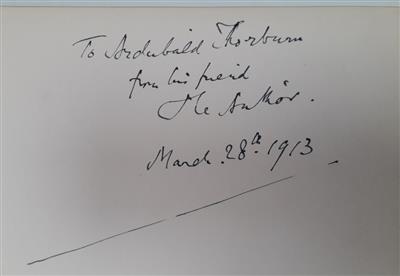 To Archibald Thorburn
from his friend
The Author.
March. 28th. 1913